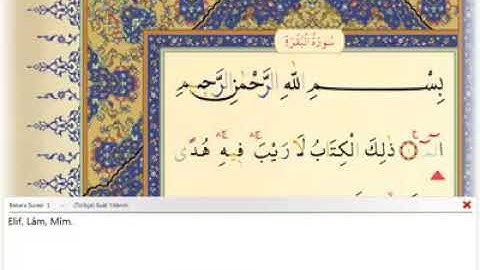 سُورَةُ الْبَقَرَةِ
بِسْمِ اللّٰهِ الرَّحْمٰنِ الرَّحِيمِ
الٓمٓ ذٰلِكَ الْكِتَابُ لَا رَيْبَ فِيهِ هُدًى
Bakara Suresi 1 - (Türkçe) Suat Yıldırım
Elif, Lâm, Mîm.